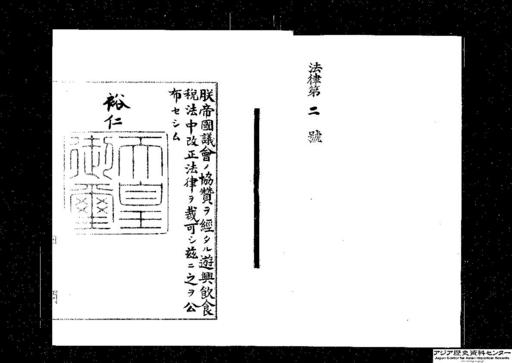 法律第二號
朕帝國議會ノ協贊ヲ經タル遊興飮食
税法中改正法律ヲ裁可シ茲ニ之ヲ公
布セシム
裕仁
天皇
御璽
アジア歴史資料センター
Japan Center for Asian Historical Records